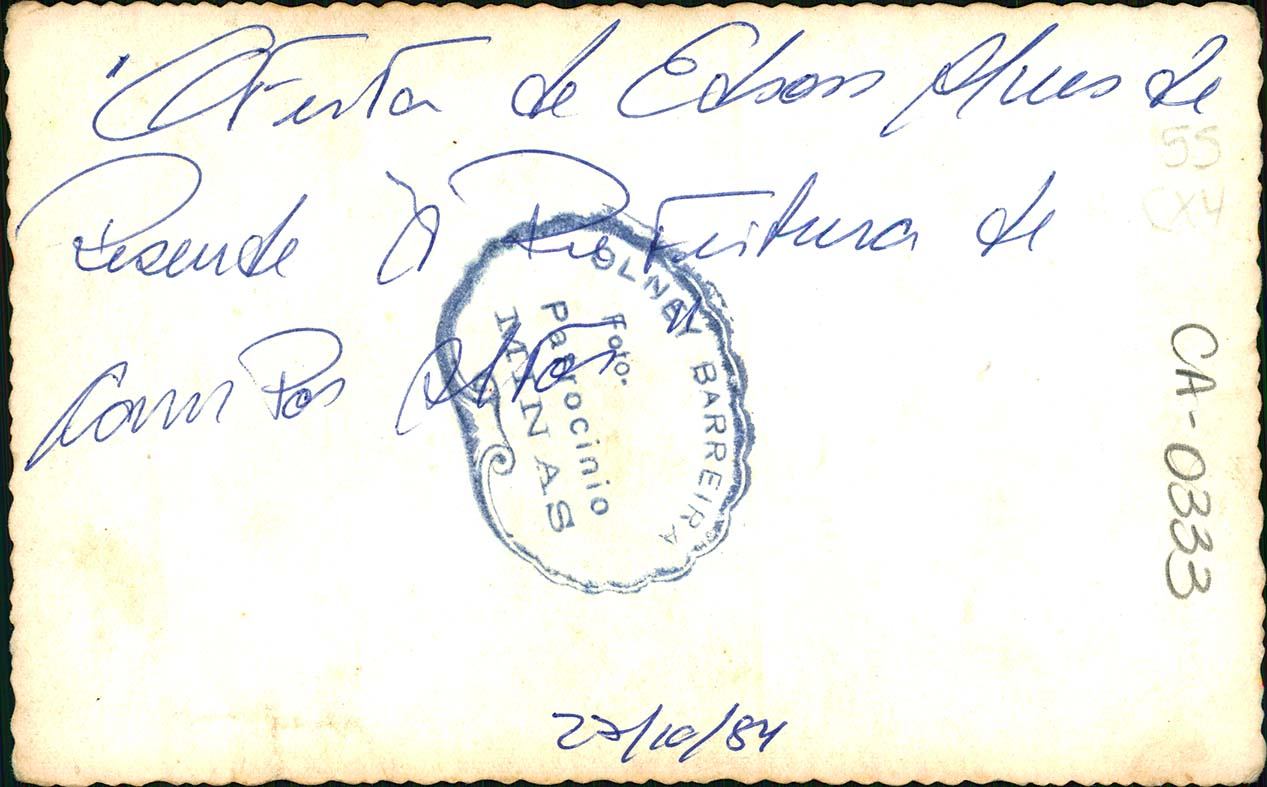 Oferta de Edson Alves de
Resende À Prefeitura de
Campos Altos
Foto.
OLNEY BARREIRA
Patrocinio
MINAS
55
CX4
CA-0333
27/10/84